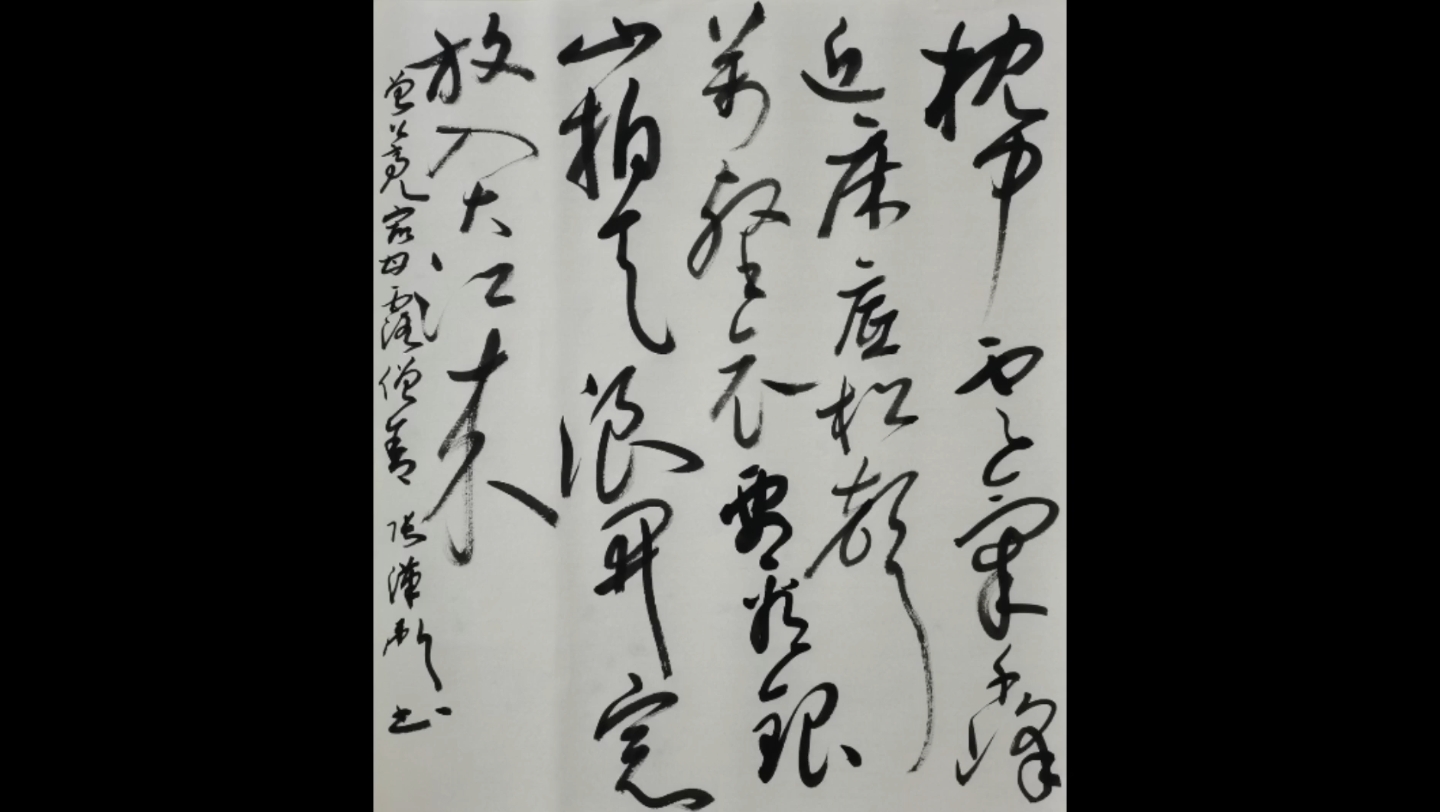 枕中雲氣千峰
近床底松聲
萬壑哀要看銀
山拍天浪開窗
放入大江来
曾公亮宿甘露僧舍 张漢书